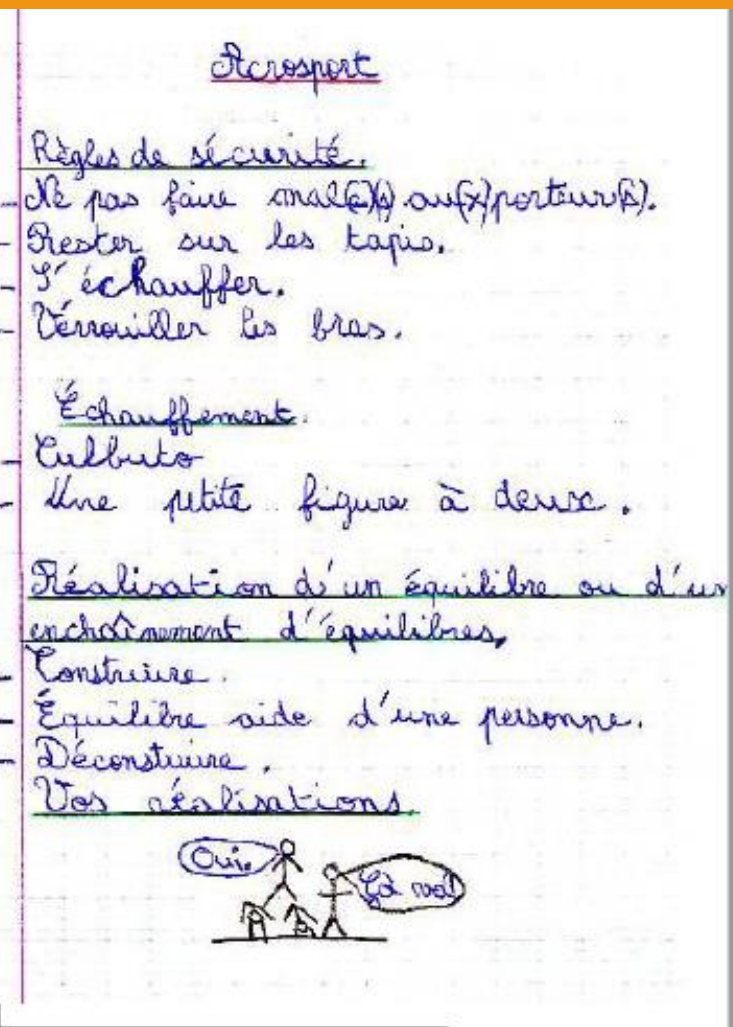 Acrosport
Règles de sécurité.
- Ne pas faire mal(e)(s) au(x) porteur(s).
- Rester sur les tapis.
- S'échauffer.
- Vérrouiller les bras.
Échauffement.
- Culbuto
- Une petite figure à deux.
Réalisation d'un équilibre ou d'un
enchaînement d'équilibres,
- Construire.
- Équilibre aide d'une personne.
- Déconstruire.
Vos réalisations.
Oui.
Ça va!